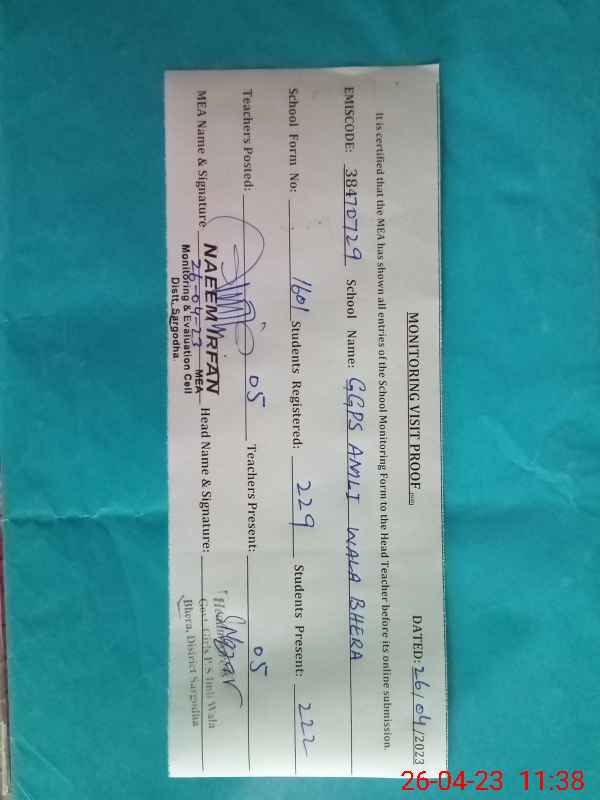 MONITORING VISIT PROOF
DATED: 26/04/2023
It is certified that the MEA has shown all entries of the School Monitoring Form to the Head Teacher before its online submission.
EMISCODE: 38470729 School Name: GGPS AMLI WALA BHERA
School Form No: 1601 Students Registered: 229 Students Present: 222
Teachers Posted: 05 Teachers Present: 05
MEA Name & Signature Head Name & Signature:
NAEEM IRFAN
26-04-23 MEA
Monitoring & Evaluation Cell
Distt. Sargodha.
Govt. Girls P/S Imli Wala
Bhera, District Sargodha
26-04-23 11:38